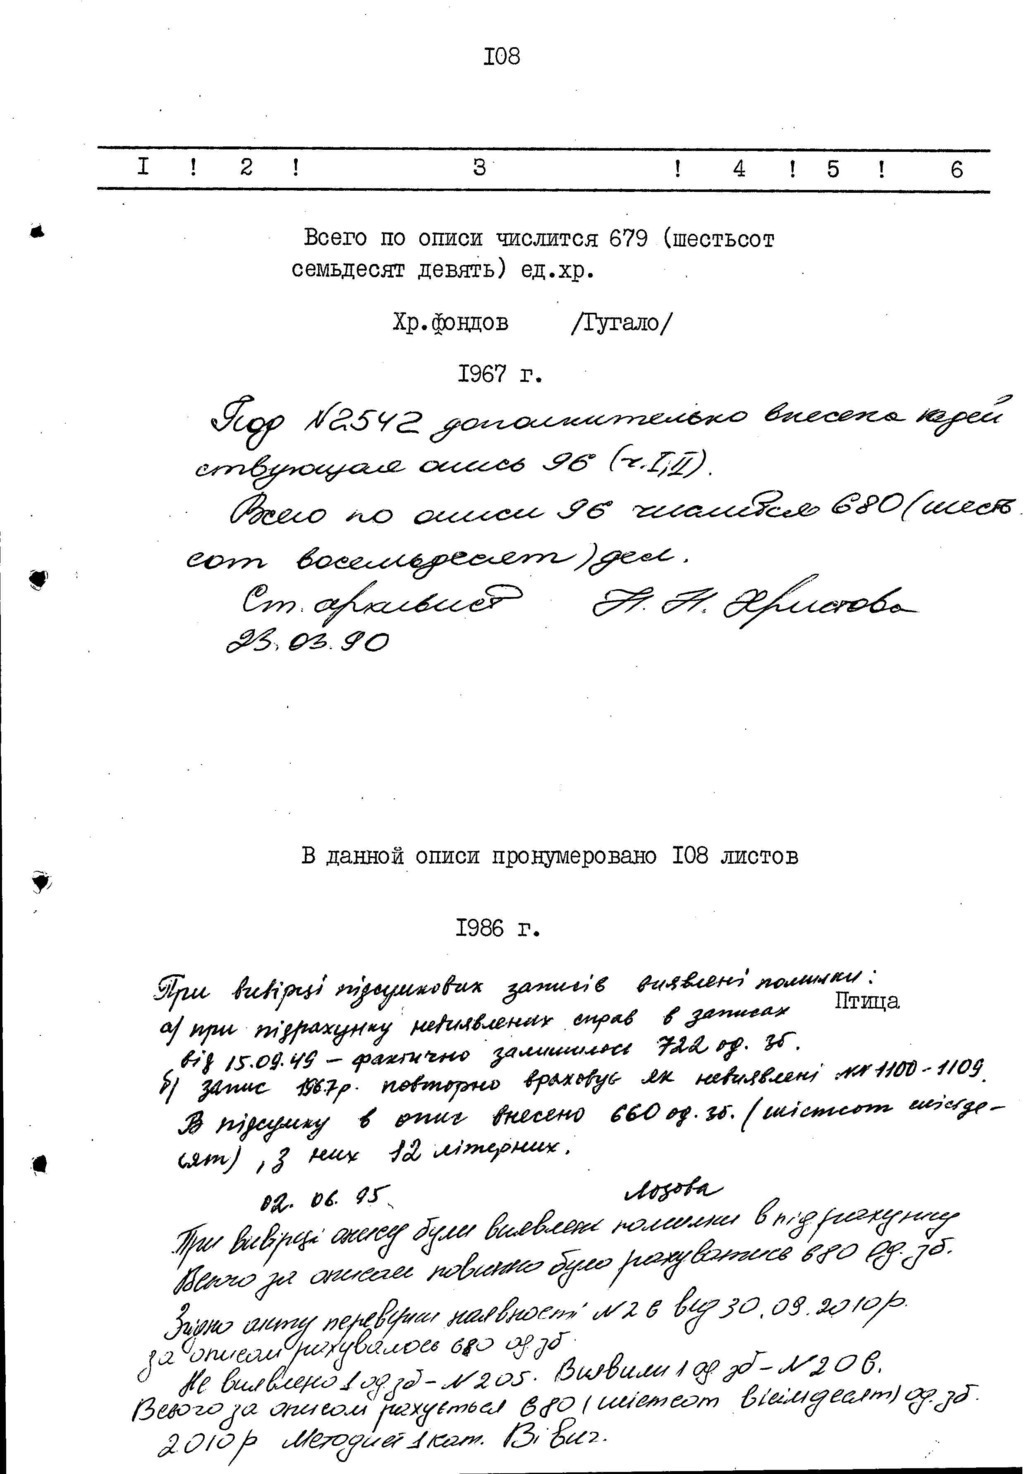 I08
I ! 2 ! 3 ! 4 ! 5 ! 6
Всего по описи числится 679 (шестьсот
семьдесят девять) ед.хр.
Хр.фондов /Тугало/
I967 г.
Под №2542 дополнительно внесена недей
ствующая опись 96 (ч.I,II).
Всего по описи 96 числится 680 (шесть
сот восемьдесят) дел.
Ст. архивист Н. Н. Христова
23.03.90
В данной описи пронумеровано I08 листов
I986 г.
При вивірці підсумкових записів виявлені помилки:
Птица
а) при підрахунку невиявлених справ в записах
від 15.09.49 – фактично залишилось 722 од. зб.
б) запис 1967р. повторно враховує як невиявлені №№ 1100-1109.
В підсумку в опис внесено 660 од. зб. (шістсот шістде-
сят), з них 12 літерних.
02. 06. 95. Лозова
При вивірці були виявлені помилки в підрахунку
Всього за описом повинно було рахуватись 680 од. зб.
Згідно акту перевірки наявності №26 від 30.09.2010р.
за описом рахувалось 680 од зб
Не виявлено 1 од зб – №205. Виявили 1 од зб – №206.
Всього за описом рахується 680 (шістсот вісімдесят) од. зб.
2010р Методист 1 кат.